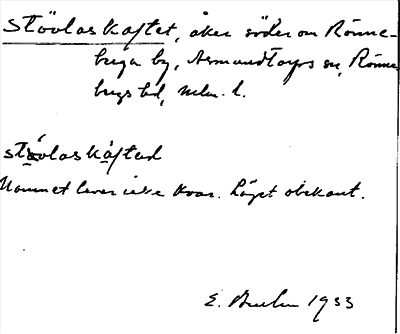 Stövlaskaftet, åker söder om Rönne-
berga by, Asmundtorps sn, Rönne-
bergs hd, Mlm. l.
stövlaskåfted
Namnet lever icke kvar. Läget obekant.
E. 1933